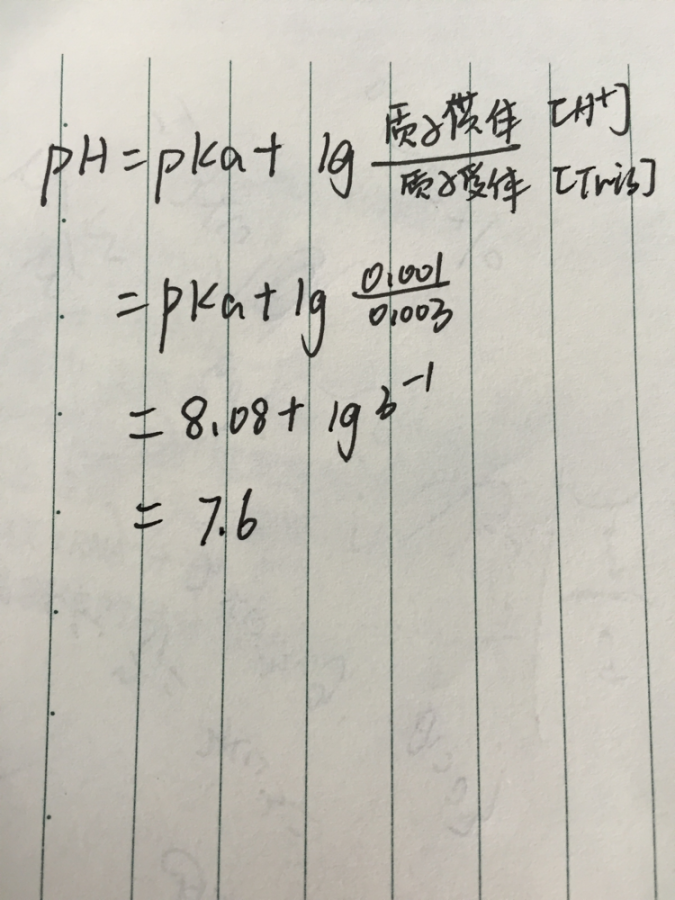 pH = pka + lg 质子供体 [H⁺] / 质子受体 [Tris]
= pKa + lg 0.001 / 0.003
= 8.08 + lg 3⁻¹
= 7.6